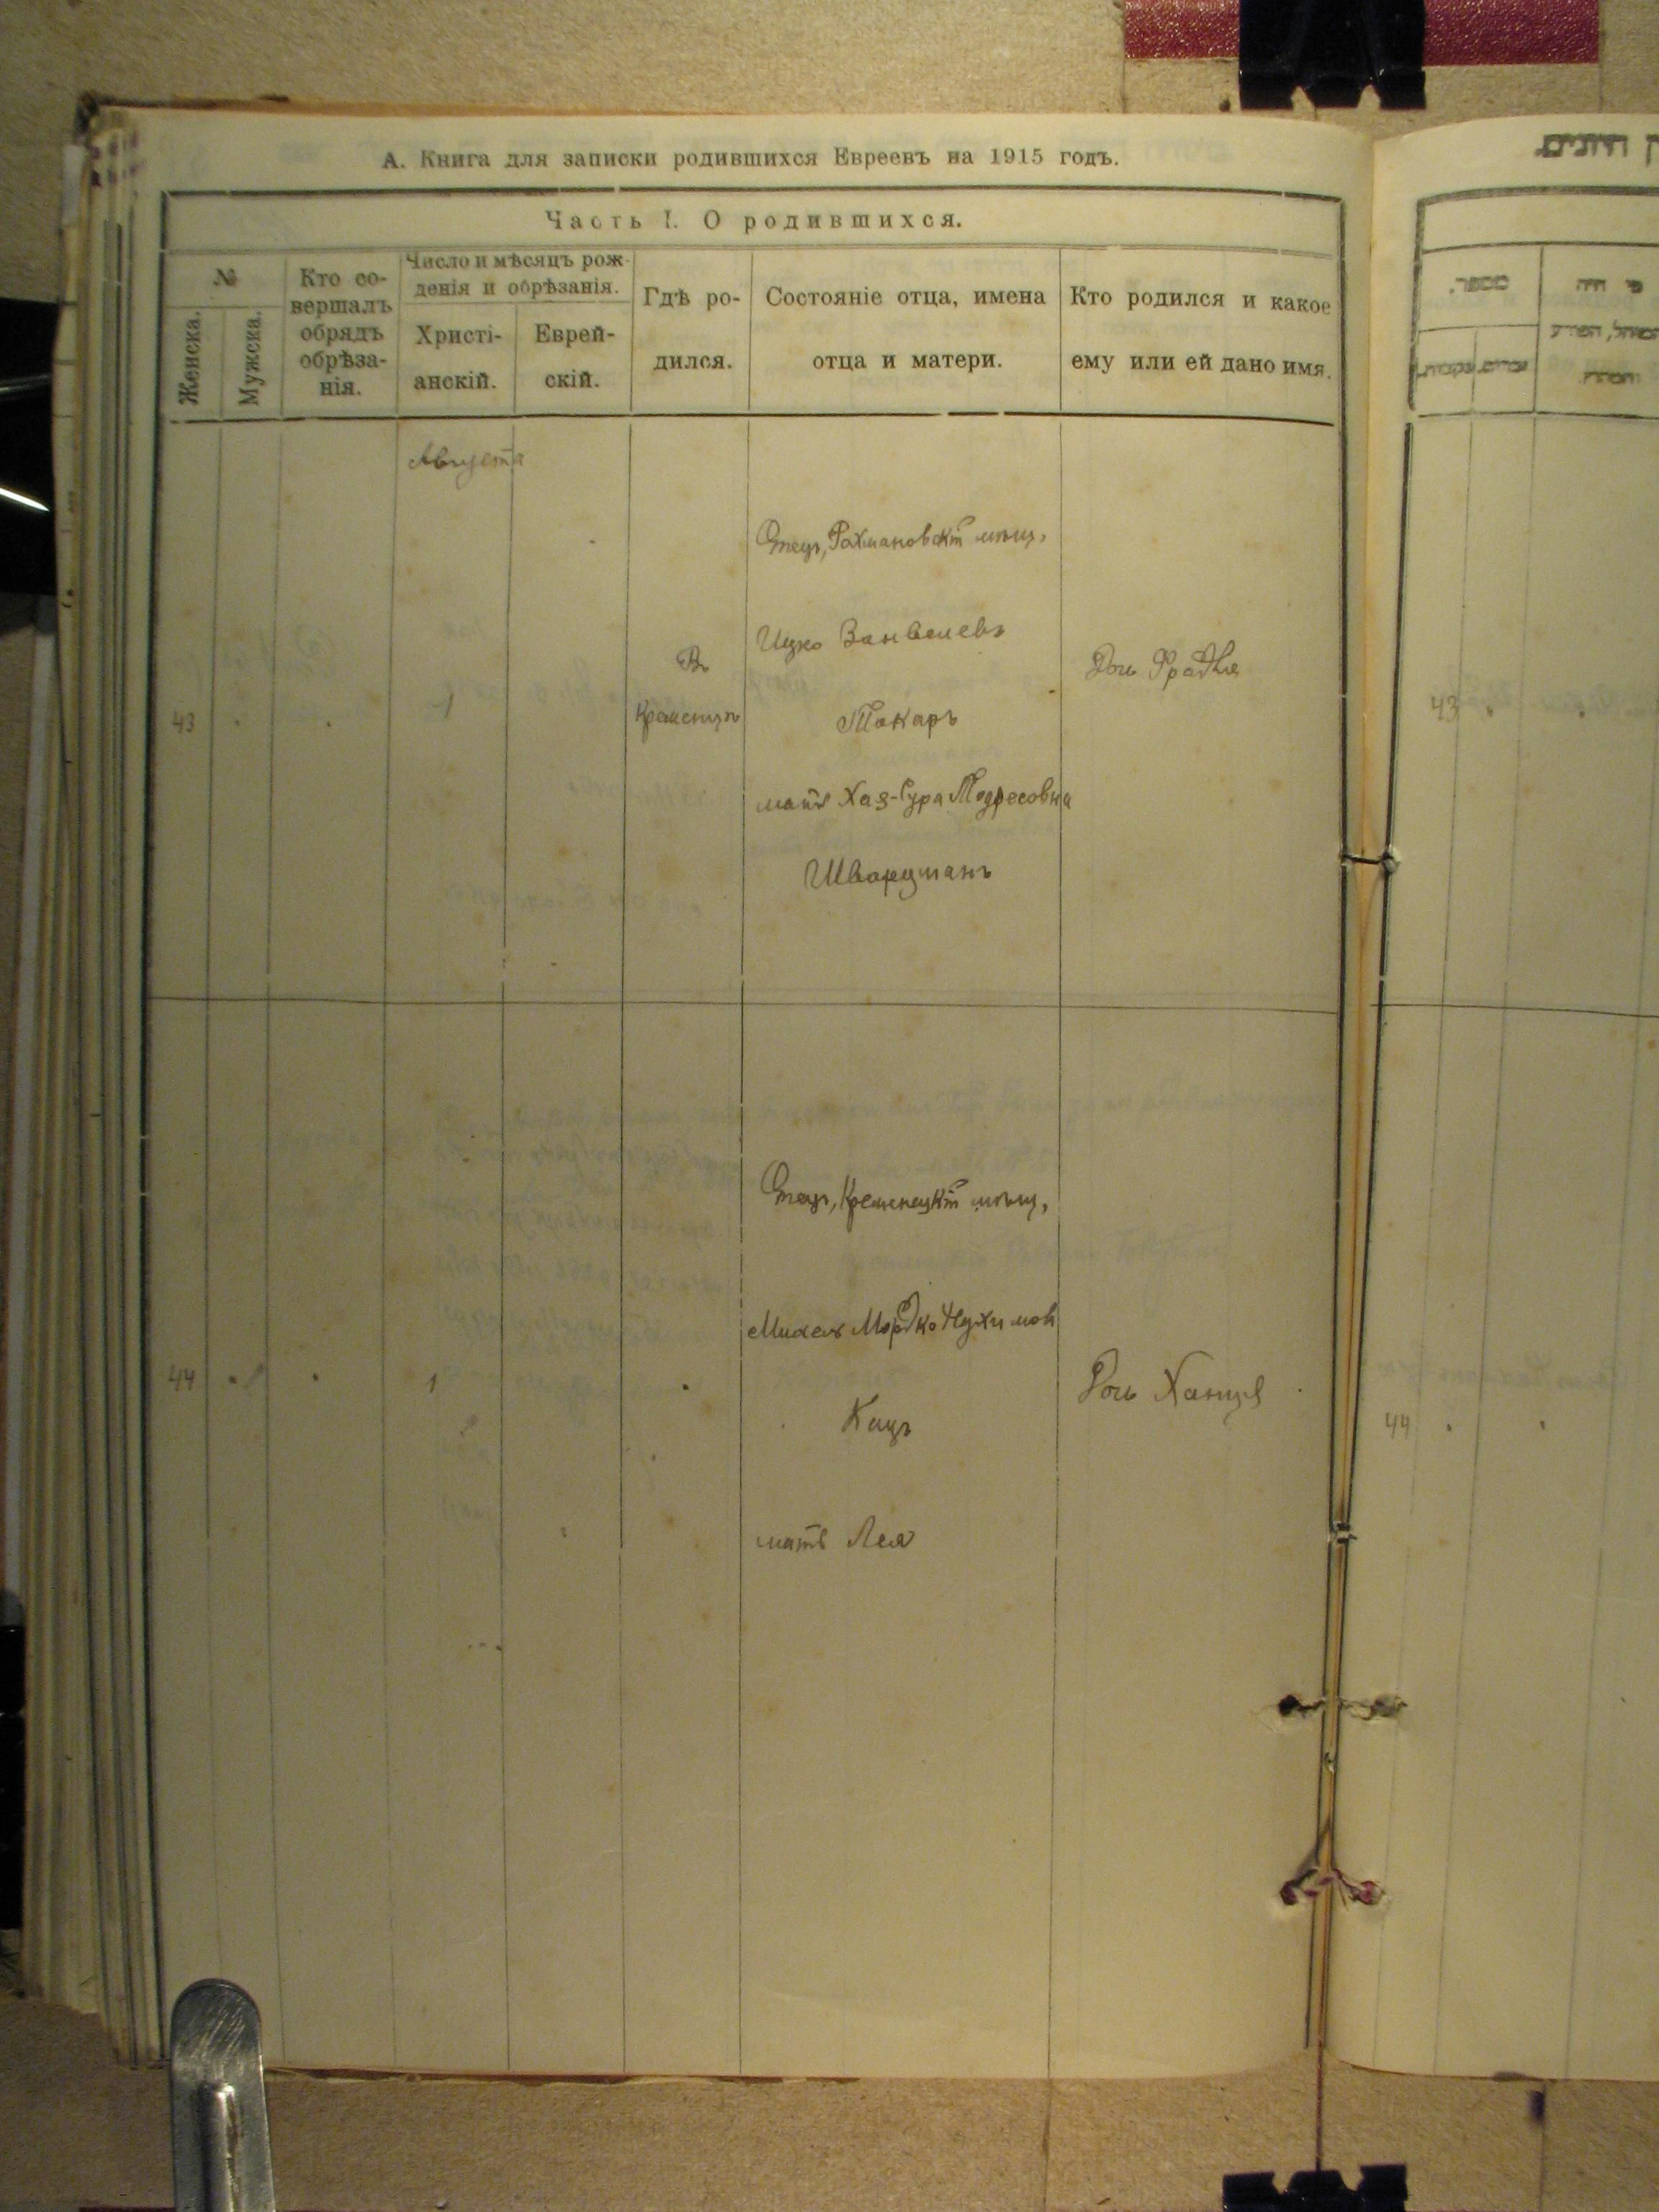 А. Книга для записки родившихся Евреевъ на 1915 годъ.
Часть I. О родившихся.
№
Женска.
Мужска.
Кто со-
вершалъ
обрядъ
обрѣза-
нія.
Число и мѣсяцъ рож-
денія и обрѣзанія.
Христі-
анскій.
Еврей-
скій.
Гдѣ ро-
дился.
Состояніе отца, имена
отца и матери.
Кто родился и какое
ему или ей дано имя.
Августа
43
1
Въ
Кременцѣ
Отецъ, Рахмановскій мѣщ.
Ицко Занвелевъ
Токаръ
мать Хая-Сура
Шварцманъ
Дочь Фрадля
44
1
Отецъ, Кременецкій мѣщ.
Михель Мордко Нухимов
Кацъ
мать Лея
Дочь Ханця
43
44